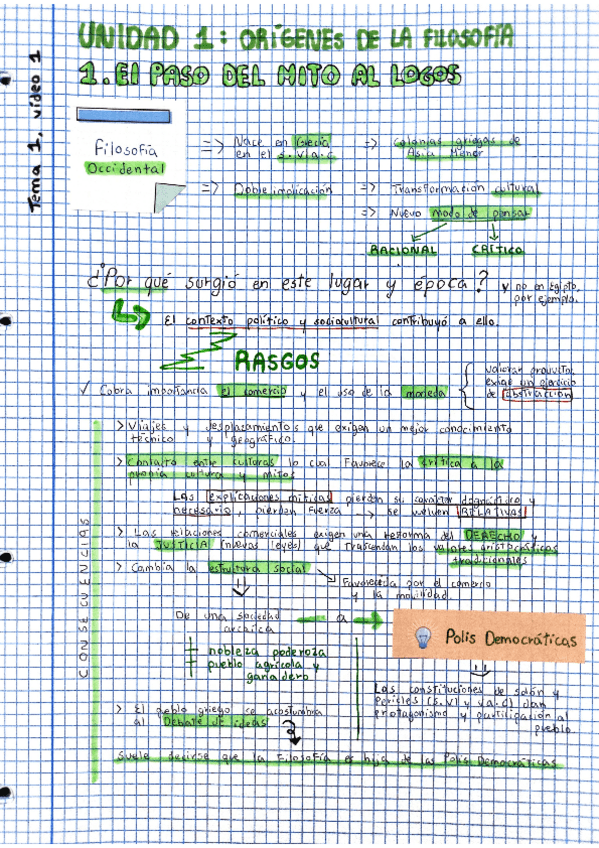 Tema 1, vídeo 1
UNIDAD 1: ORÍGENES DE LA FILOSOFÍA
1. El PASO DEL MITO AL LOGOS
Filosofía
Occidental
=> Nace en Grecia
en el s. VI a.c
=> Colonias griegas de
Asia Menor
=> Doble implicación
=> Transformación cultural
=> Nuevo modo de pensar
RACIONAL
CRÍTICO
¿Por qué surgió en este lugar y época? y no en Egipto,
por ejemplo.
El contexto político y sociocultural contribuyó a ello.
RASGOS
✓ Cobra importancia el comercio y el uso de la moneda
valorar productos
exige un ejercicio
de abstracción
CONSECUENCIAS
> Viajes y desplazamientos que exigen un mejor conocimiento
técnico y geográfico.
> Contacto entre culturas lo cual favorece la crítica a la
propia cultura y mitos
Las explicaciones míticas pierden su carácter dogmático y
necesario, pierden fuerza -> se vuelven RELATIVAS
> Las relaciones comerciales exigen una reforma del DERECHO y
la JUSTICIA (nuevas leyes) que trascendan los valores aristocráticos
tradicionales
> Cambia la estrutura social
Favorecida por el comercio
y la movilidad.
De una sociedad
arcaica
a
Polis Democráticas
+ nobleza poderoza
+ pueblo agrícola y
ganadero
Las constituciones de Solón y
Pericles (s. VI y V a.C) dan
protagonismo y participación al
pueblo
> El pueblo griego se acostumbra
al Debate de ideas
Suele decirse que la Filosofía es hija de las Polis Democráticas